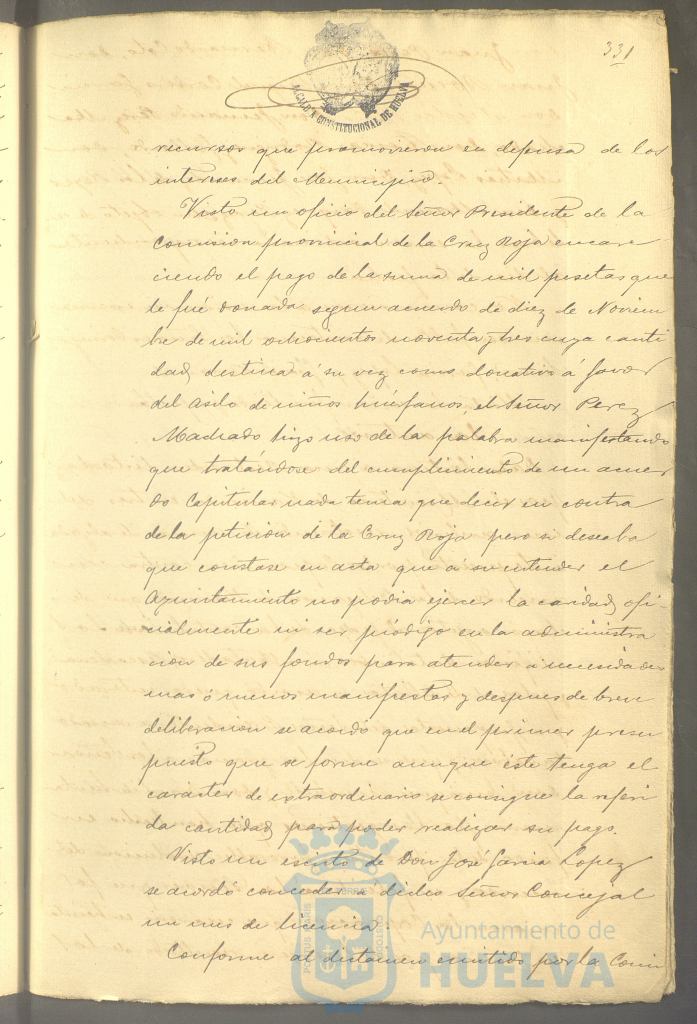 331
ALCALDIA CONSTITUCIONAL DE HUELVA
recursos que promovieron en defensa de los
intereses del Municipio.
Visto un oficio del Señor Presidente de la
Comision provincial de la Cruz Roja encare
ciendo el pago de la suma de mil pesetas que
le fué donada segun acuerdo de diez de Noviem
bre de mil ochocientos noventa y tres cuya canti
dad destina á su vez como donativo á favor
del Asilo de niños huérfanos, el Señor Perez
Machado hizo uso de la palabra manifestando
que tratándose del cumplimiento de un acuer
do Capitular nada tenia que decir en contra
de la peticion de la Cruz Roja pero si deseaba
que constase en acta que á su entender el
Ayuntamiento no podia ejercer la caridad ofi
cialmente ni ser pródigo en la administra
cion de sus fondos para atender á necesidades
mas ó menos manifiestas y despues de breve
deliberacion se acordó que en el primer presu
puesto que se forme aunque éste tenga el
carácter de extraordinario se consigne la referi
da cantidad para poder realizar su pago.
Visto un escrito de Don José Garcia Lopez
se acordó conceder á dicho Señor Concejal
un mes de licencia.
Conforme al dictamen emitido por la Comi
PORTUS MARIS
ET TERRE
CUSTODIA
Ayuntamiento de
HUELVA